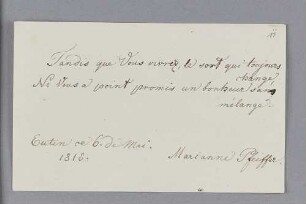 Tandis que Vous vivrez, le sort qui toujours
change,
Ne Vous a point promis un bonheur sans
mélange.
Eutin ce 6. de Mai.
1816.
Marianne Pfeuffer.